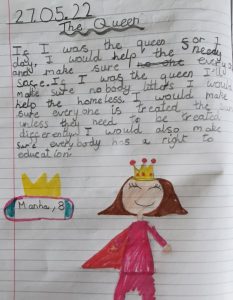 27.05.22
The Queen
If I was the queen for 1
day, I would help the needy
and make sure no one every
sace. If I was the queen I'll
make sure nobody litters I would
help the homeless. I would make
sure everyone is treated the
unless they need to be treated
differently. I would also make
sure everybody has a right to
education.
Manha, 8